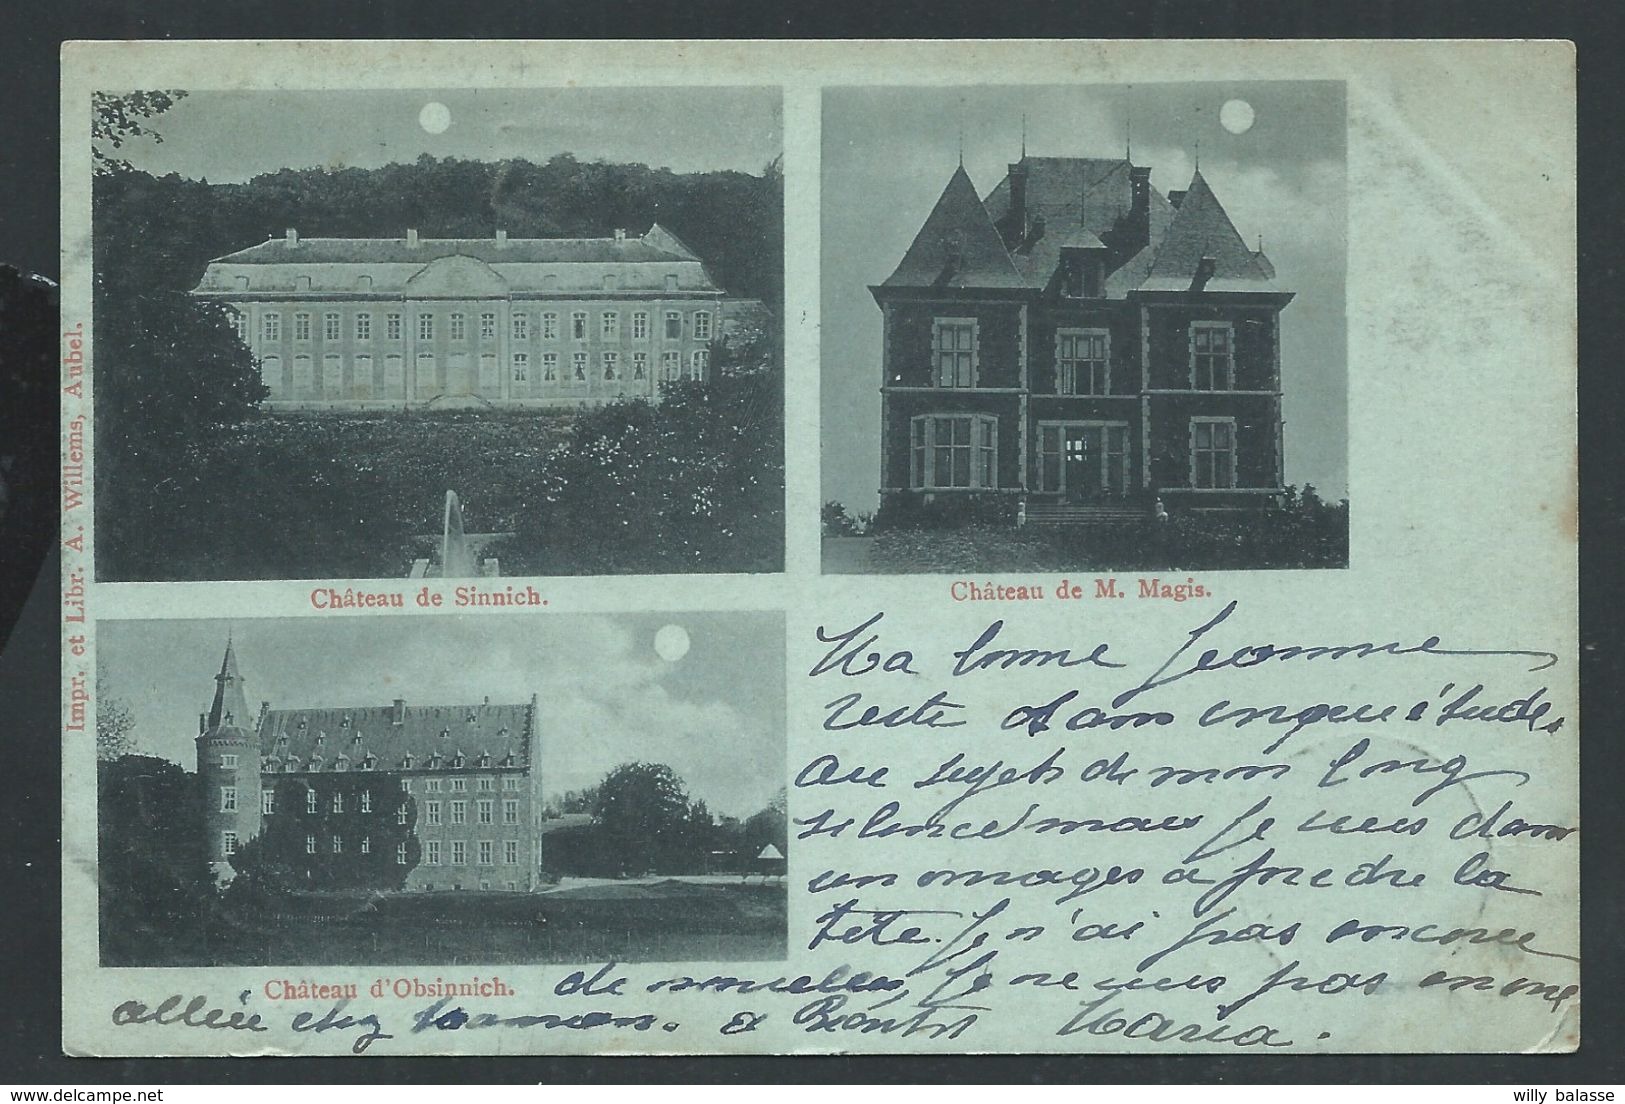 Impr. et Libr. A. Willems, Aubel.
Château de Sinnich.
Château de M. Magis.
Château d'Obsinnich.
Ma bonne Jeanne
reste sans inquiétude
au sujet de mon long
silence mais je suis dans
un ménages à perdre la
tête. Je n'ai pas encore
de nouvelles, je ne suis pas encore
allée chez maman. à Bientôt Maria.
willy balasse